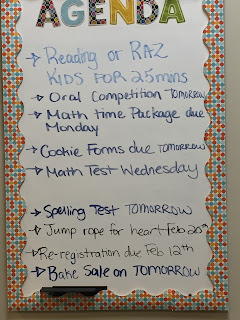 AGENDA
→ Reading or RAZ
KIDS FOR 25mins
→ Oral Competition TOMORROW
→ Math time Package due
Monday
→ Cookie Forms due TOMORROW
→ Math Test Wednesday
→ Spelling Test TOMORROW
→ Jump rope for heart-Feb 20th
→ Re-registration due Feb 12th
→ Bake Sale on TOMORROW